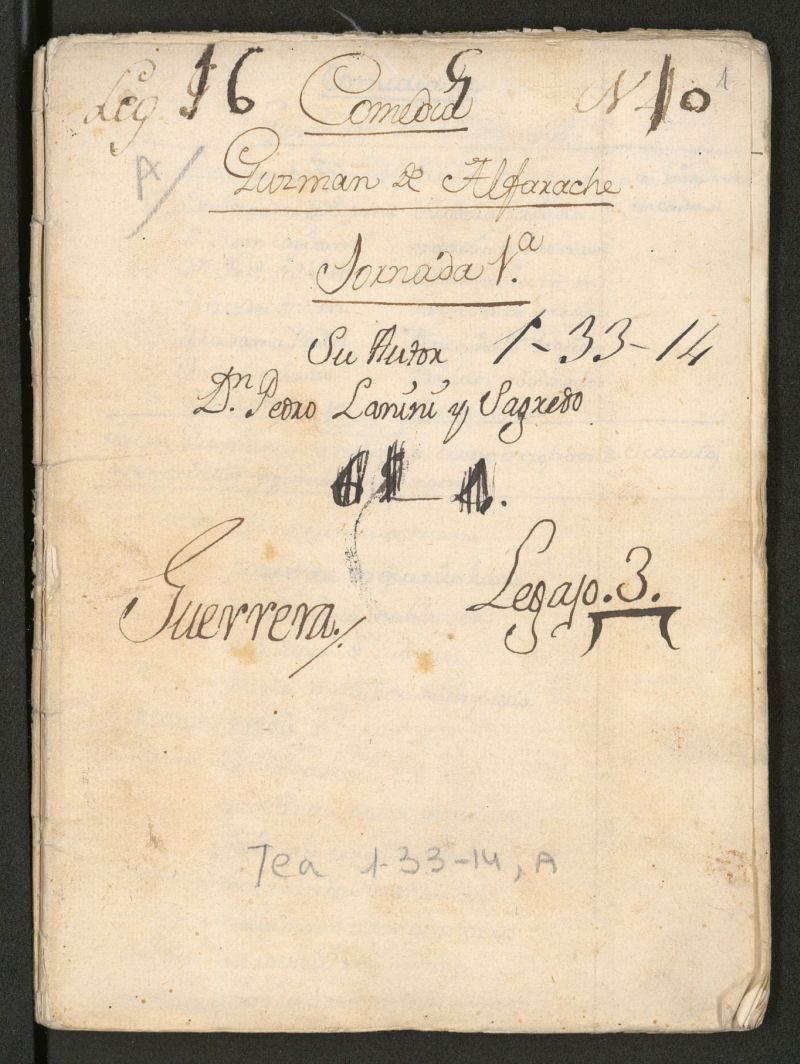 Leg 16 Comedia G N 10 1
A
Guzman de Alfarache
Jornada 1.a
Su Autor 1-33-14
Dn. Pedro Lanini y Sagredo
Guerrera. Legajo.3.
Tea 1-33-14, A